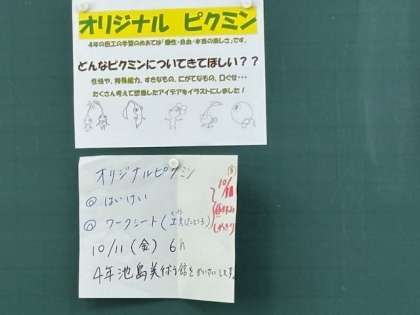 オリジナル ピクミン
4年の図工の学習のめあては「個性・自由・本当の楽しさ」です。
どんなピクミンについてきてほしい？？
性格や、特殊能力、すきなもの、にがてなもの、口ぐせ･･･
たくさん考えて想像したアイデアをイラストにしました！
オリジナルピクミン
◎ はいけい
◎ ワークシート(
10/11(金) 6h
4年池島美じゅつ館を
10/